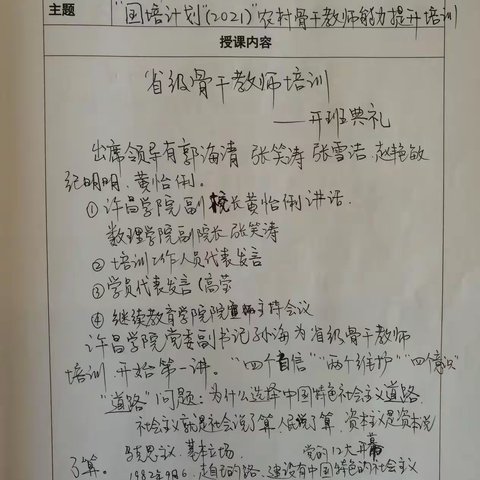 主题 "国培计划"(2021)"农村骨干教师能力提升培训
授课内容
省级骨干教师培训
——开班典礼
出席领导有郭海清 张笑涛 张雪洁 赵艳敏
纪明明、黄怡俐。
①许昌学院副校长黄怡俐讲话.
数理学院副院长 张笑涛
②培训工作人员代表发言
③学员代表发言(高莹
④继续教育学院院 主持会议
许昌学院党委副书记孙海为省级骨干教师
培训开始第一讲。"四个自信""两个维护""四个意识"
"道路"问题:为什么选择中国特色社会主义道路.
社会主义就是社会说了算,人民说了算,资本主义是资本说
了算。马克思主义、基本立场. 党的12大开幕
1982年9月 走自己的路,建设有中国特色的社会主义